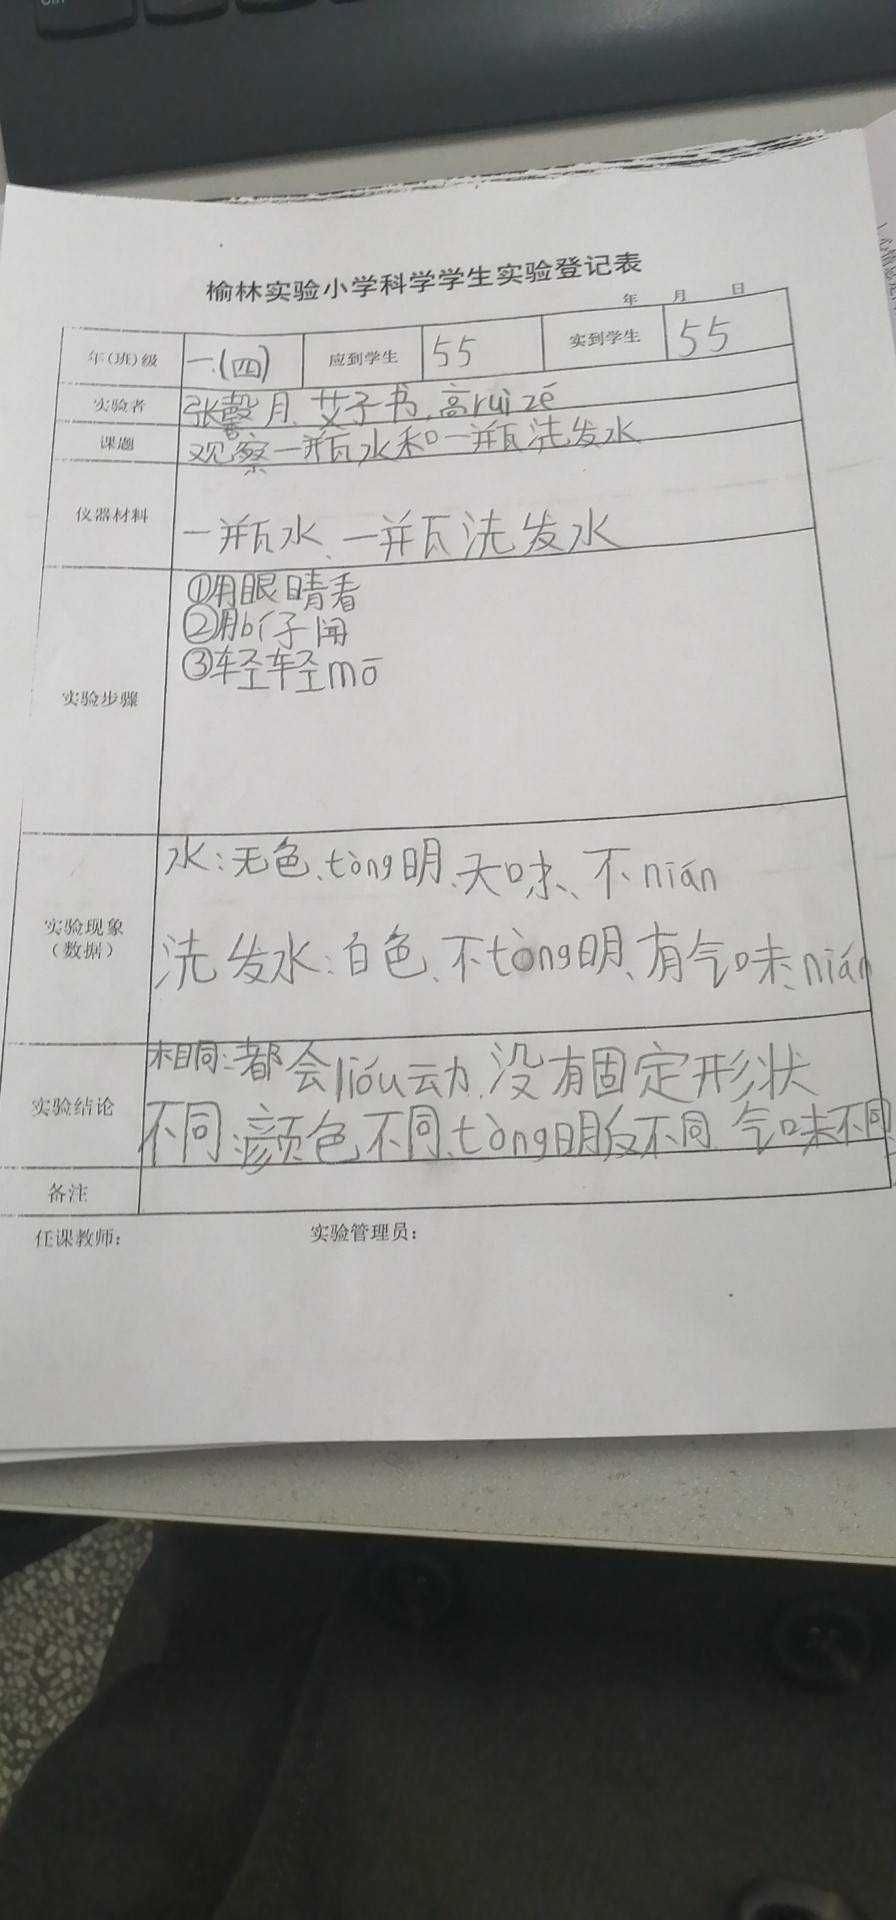 榆林实验小学科学学生实验登记表
年 月 日
年(班)级 一.(四) 应到学生 55 实到学生 55
实验者 张馨月、艾子书、高ruì zé
课题 观察一瓶水和一瓶洗发水
仪器材料 一瓶水、一瓶洗发水
①用眼睛看
②用bí子闻
③轻轻mō
实验步骤
水:无色、tòng明、无味、不nián
实验现象
(数据)
洗发水:白色、不tòng明、有气味、nián
相同:都会lióu动、没有固定形状
实验结论
不同:颜色不同、tòng明度不同、气味不同
备注
任课教师: 实验管理员: